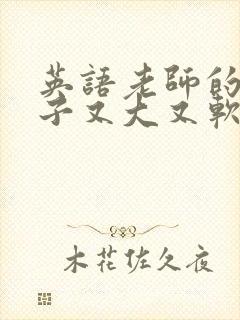 英語老師的
子又大又軟
木花佐久夜